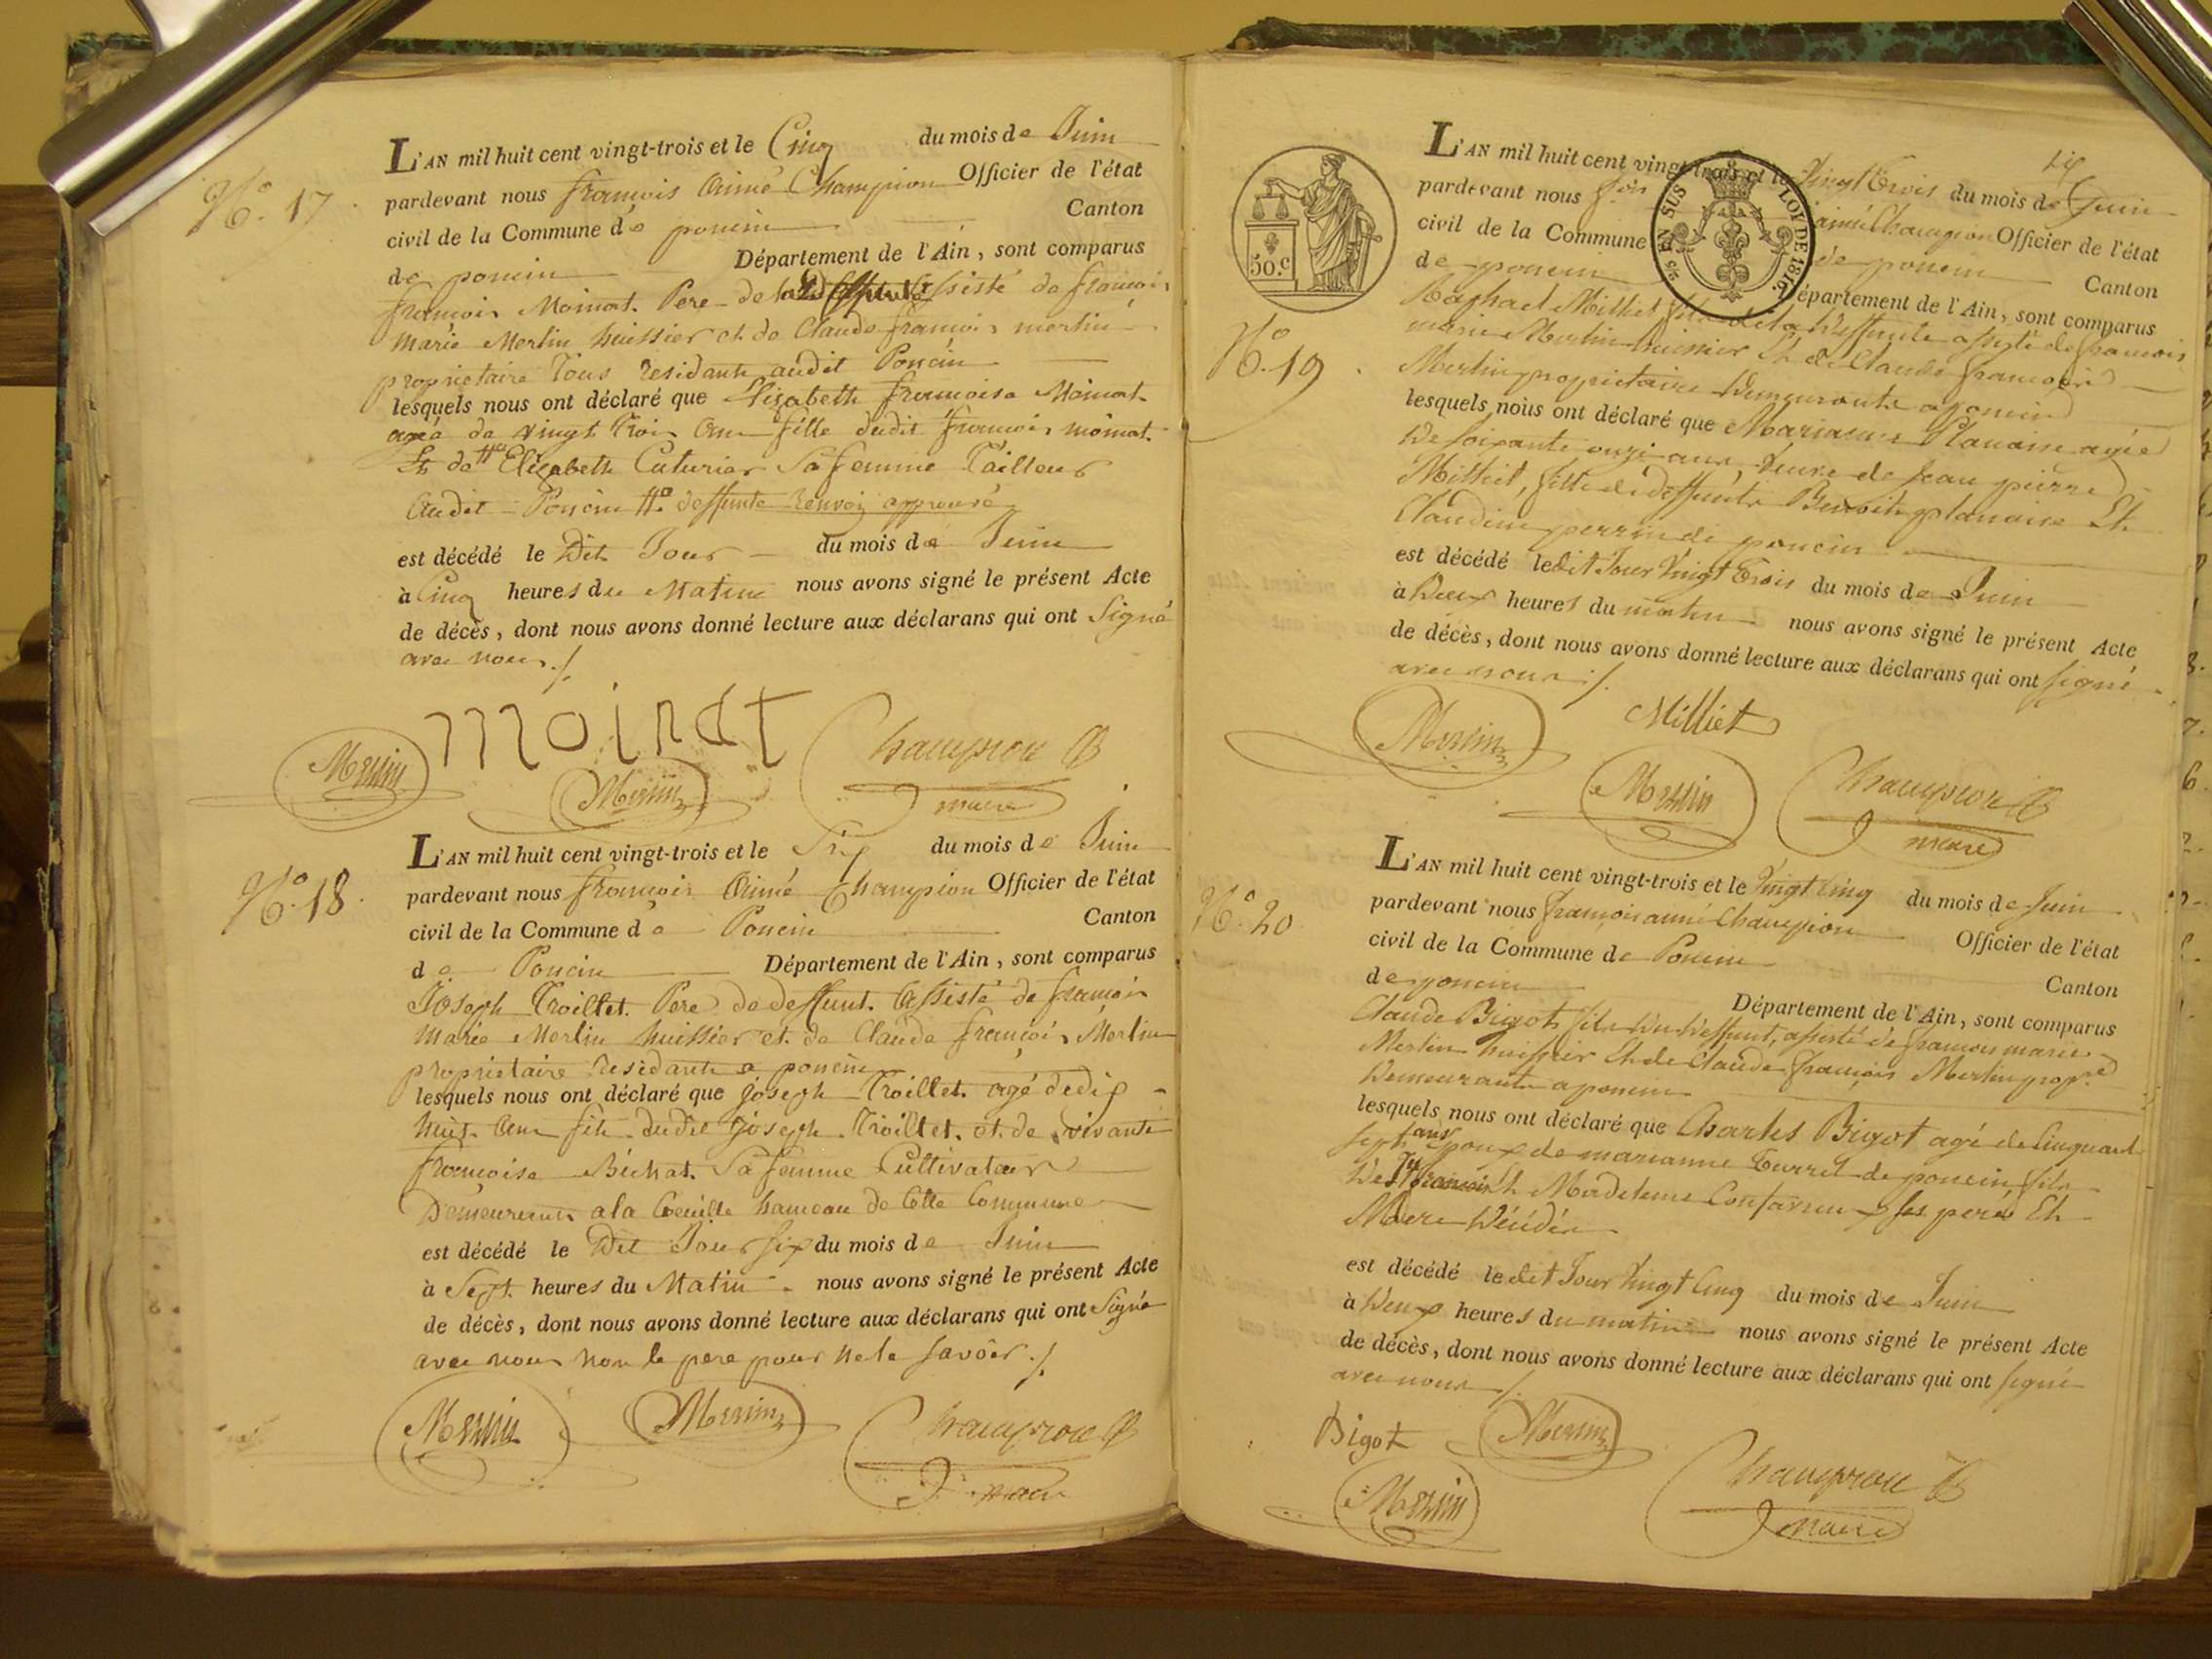 N.º 17
L'AN mil huit cent vingt-trois et le Cinq du mois de Juin
pardevant nous françois Aimé Champion Officier de l'état
civil de la Commune de poncin Canton
de poncin Département de l'Ain, sont comparus
françois Moinat Pere de la assisté de françois
marie Merlin huissier et de Claude françois merlin
proprietaire Tous residants audit Poncin
lesquels nous ont déclaré que Elisabeth françoise Moinat
agéé de vingt trois ans fille dudit françois moinat
Et de Elizabeth Caturier Sa femme Tailleur
audit Poncin deffunte renvoi approuvé
est décédé le Dit Jour du mois de Juin
à Cinq heures du Matin nous avons signé le présent Acte
de décès, dont nous avons donné lecture aux déclarans qui ont Signé
avec nous ./.
moinat
Merlin Merlin Champion
maire
N.º 18
L'AN mil huit cent vingt-trois et le Six du mois de Juin
pardevant nous françois Aimé Champion Officier de l'état
civil de la Commune de Poncin Canton
de Poncin Département de l'Ain, sont comparus
Joseph Troillet Pere de deffunt assisté de françois
Marie Merlin huissier et de Claude françois Merlin
proprietaire residants a poncin
lesquels nous ont déclaré que Joseph Troillet agé de dix
huit ans fils dudit Joseph Troillet et de vivante
françoise Béchat Sa femme Cultivateur
Demeurants a la hameau de Cette Commune
est décédé le Dit Jour six du mois de Juin
à Sept heures du Matin nous avons signé le présent Acte
de décès, dont nous avons donné lecture aux déclarans qui ont Signé
avec nous non le pere pour ne le savoir ./.
Merlin Merlin Champion
maire
50.c
EN SUS LOI DE 1816
N.º 19
L'AN mil huit cent vingt-trois et le Vingt Trois du mois de Juin
pardevant nous aimé Champion Officier de l'état
civil de la Commune de poncin Canton
de poncin Département de l'Ain, sont comparus
Raphael Milliet fils de la Deffunte assisté de françois
marie Merlin huissier Et de Claude françois
Merlin proprietaire Demeurants a poncin
lesquels nous ont déclaré que Marianne Planaise agée
De soixante onze ans, Veuve de Jean pierre
Milliet, fille de deffunts Benoit planaise Et
Claudine perrin de poncin
est décédé le dit Jour Vingt Trois du mois de Juin
à Deux heures du matin nous avons signé le présent Acte
de décès, dont nous avons donné lecture aux déclarans qui ont signé
avec nous ./.
Merlin Milliet
Merlin Champion
maire
N.º 20
L'AN mil huit cent vingt-trois et le Vingt Cinq du mois de Juin
pardevant nous françois aimé Champion Officier de l'état
civil de la Commune de Poncin Canton
de poncin Département de l'Ain, sont comparus
Claude Bigot fils Du Deffunt, assisté de françois marie
Merlin huissier Et de Claude françois Merlin prop.re
Demeurants a poncin
lesquels nous ont déclaré que Charles Bigot agé de Cinquante
sept ans Epoux de marianne Turrel de poncin fils
De françois Et Madeleine ses pere Et
Mere Décédés
est décédé le dit Jour Vingt Cinq du mois de Juin
à Deux heures du matin nous avons signé le présent Acte
de décès, dont nous avons donné lecture aux déclarans qui ont signé
avec nous ./.
Bigot Merlin
Merlin Champion
maire